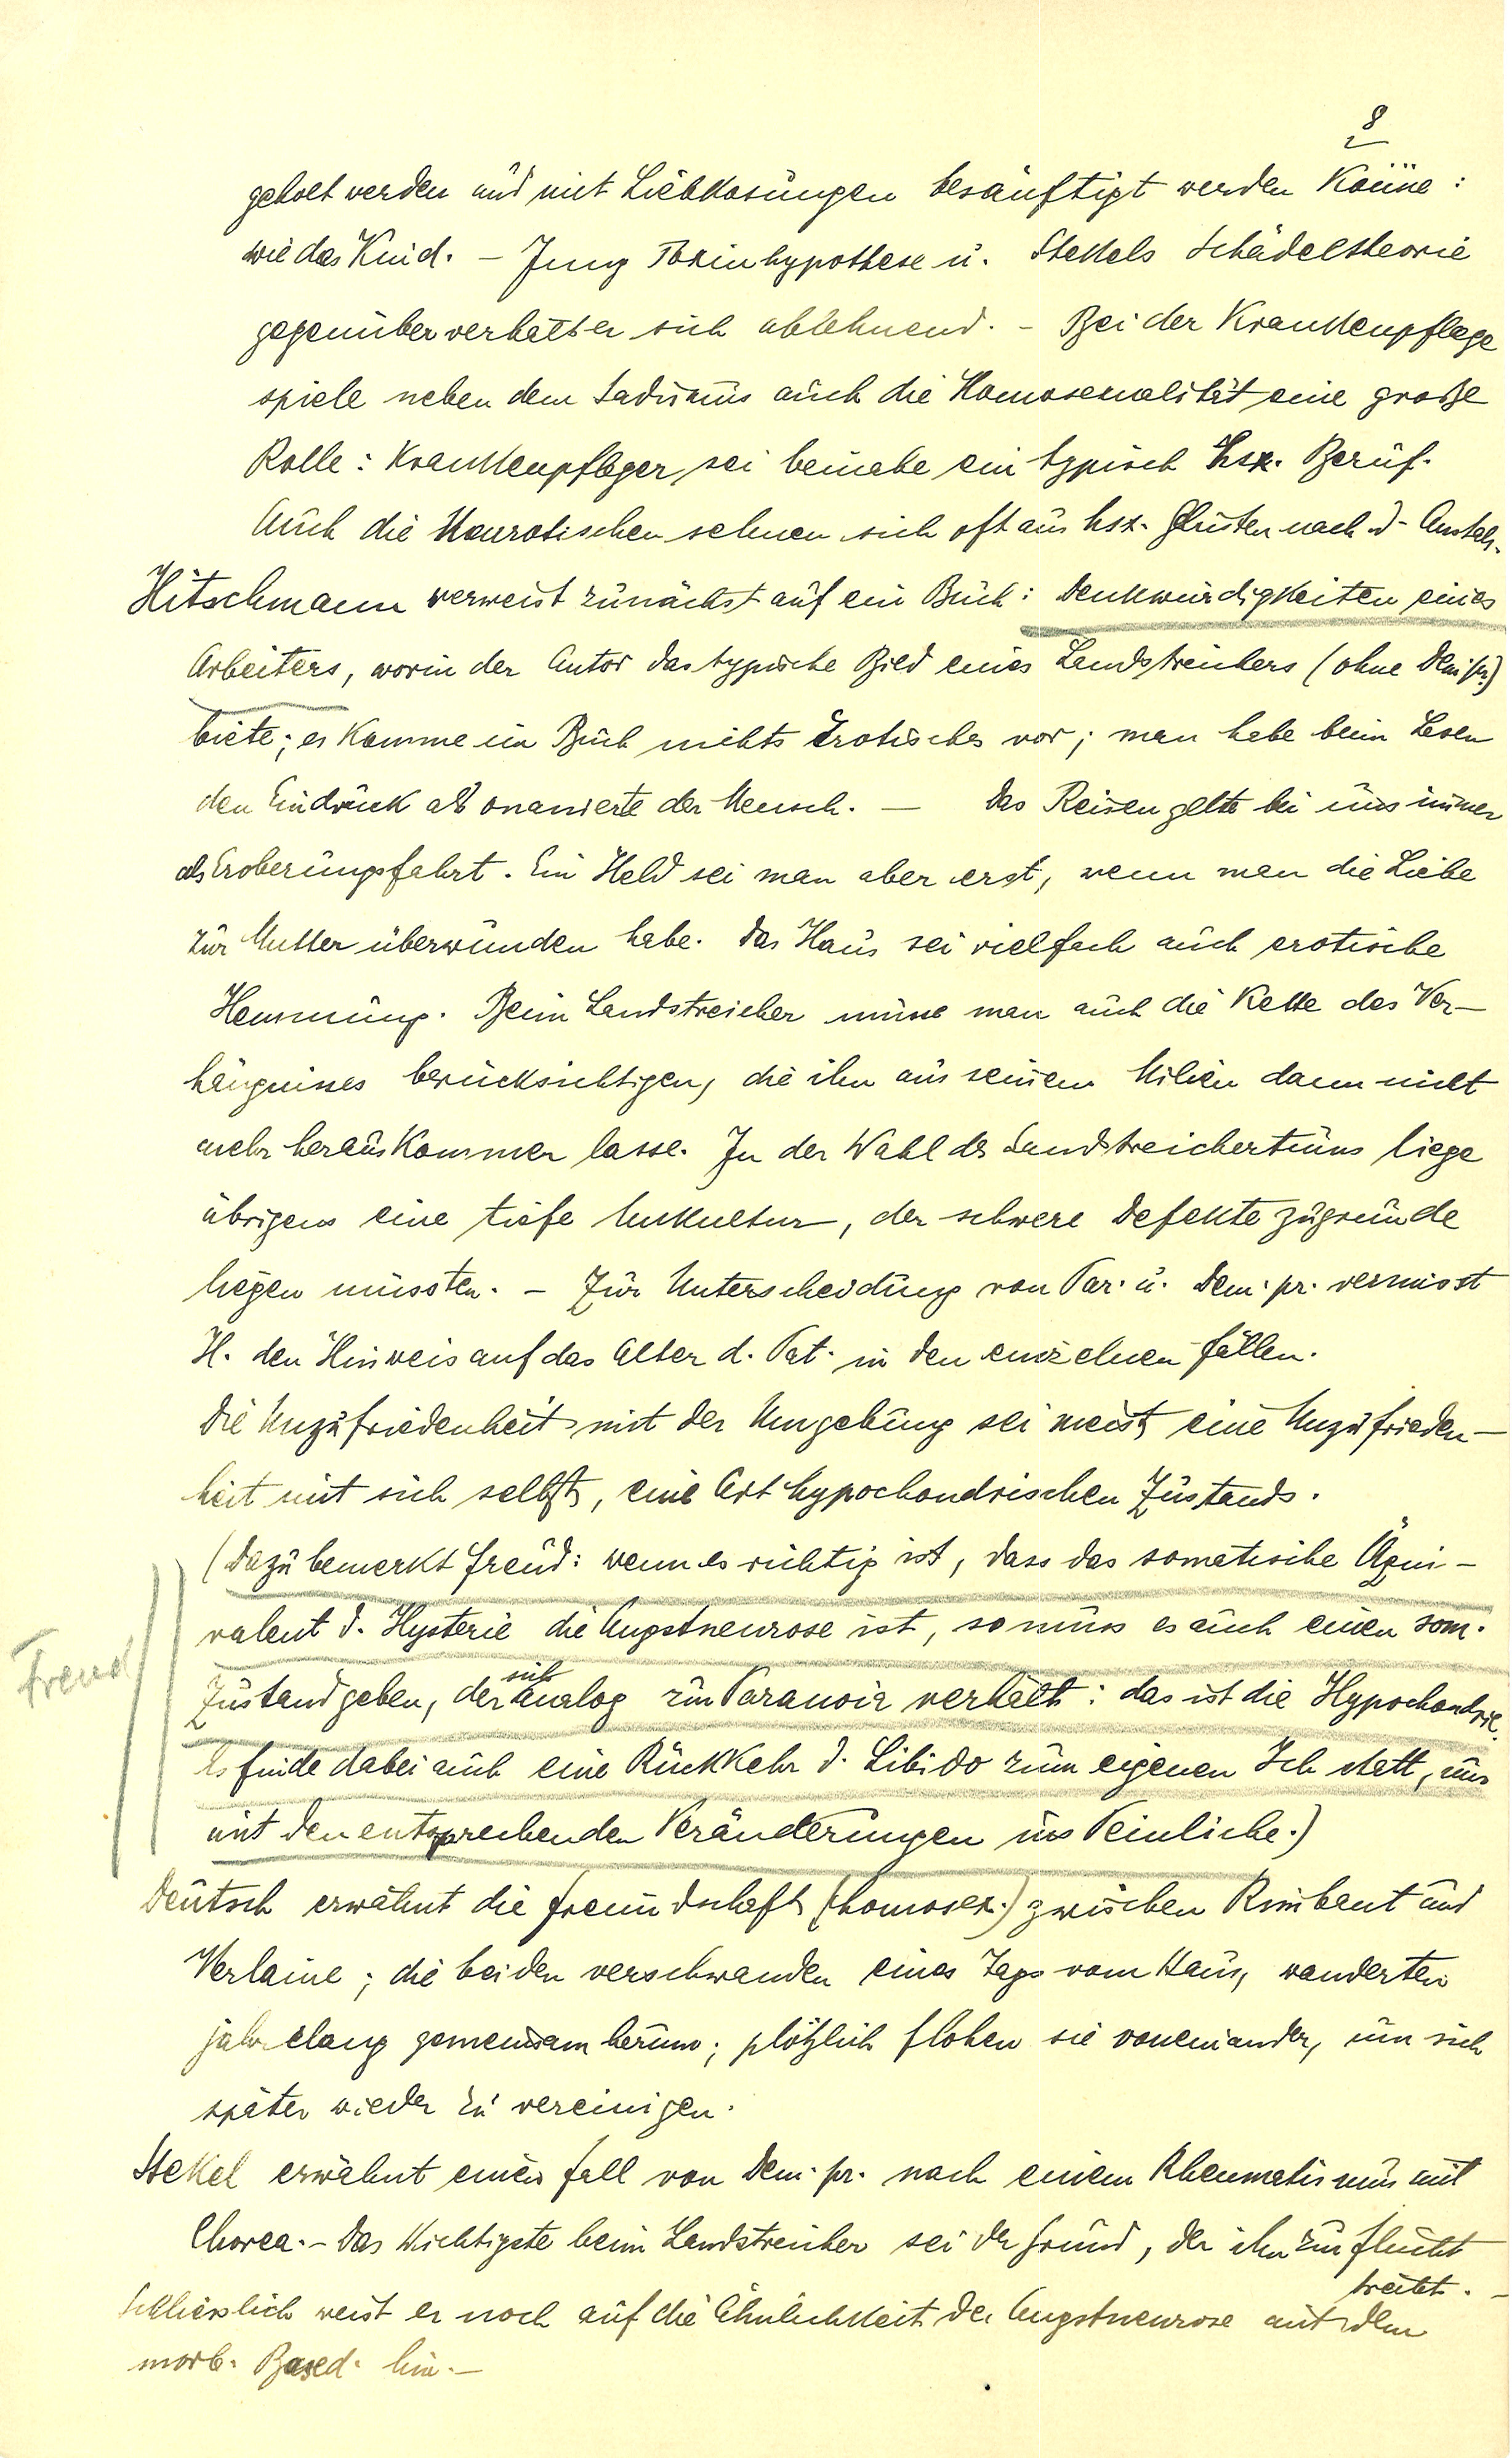 8
geholt werden und mit Liebkosungen besänftigt werden könne:
wie das Kind. – Jung Toxinhypothese u. Stekels Schädeltheorie
gegenüber verhält er sich ablehnend. – Bei der Krankenpflege
spiele neben dem Sadismus auch die Homosexualität eine große
Rolle: Krankenpfleger sei beinahe ein typisch hsx. Beruf.
Auch die Neurotischen sehnen sich oft aus hsx. Gelüsten nach d. Anstalt.
Hitschmann verweist zunächst auf ein Buch: Denkwürdigkeiten eines
Arbeiters, worin der Autor das typische Bild eines Landstreichers (ohne Dem. pr.)
biete; es komme im Buch nichts Erotisches vor; man habe beim Lesen
den Eindruck als onanierte der Mensch. — Das Reisen gelte bei uns immer
als Eroberungsfahrt. Ein Held sei man aber erst, wenn man die Liebe
zur Mutter überwunden habe. Das Haus sei vielfach auch erotische
Hemmung. Beim Landstreicher müsse man auch die Kette des Ver-
hängnisses berücksichtigen, die ihn aus seinem Milieu dann nicht
mehr herauskommen lasse. In der Wahl des Landstreichertums liege
übrigens eine tiefe Unkultur, der schwere Defekte zugrunde
liegen müssten. – Zur Unterscheidung von Par. u. Dem. pr. vermisst
H. den Hinweis auf das Alter d. Pat. in den einzelnen Fällen.
Die Unzufriedenheit mit der Umgebung sei meist eine Unzufrieden-
heit mit sich selbst, eine Art hypochondrischen Zustands.
(Dazu bemerkt Freud: wenn es richtig ist, dass das somatische Äqui-
valent d. Hysterie die Angstneurose ist, so muss es auch einen som.
Freud
Zustand geben, der sich analog zur Paranoia verhält: das ist die Hypochondrie.
Es finde dabei auch eine Rückkehr d. Libido zum eigenen Ich statt, nur
mit den entsprechenden Veränderungen ins Peinliche.)
Deutsch erwähnt die Freundschaft (homosex.) zwischen Rimbeut und
Verlaine; die beiden verschwanden eines Tags vom Haus, wanderten
jahrelang gemeinsam herum; plötzlich flohen sie voneinander, um sich
später wieder zu vereinigen.
Stekel erwähnt einen Fall von Dem. pr. nach einem Rheumatismus mit
Chorea. – Das Wichtigste beim Landstreicher sei der Grund, der ihn zur Flucht
treibt. –
Schliesslich weist er noch auf die Ähnlichkeit der Angstneurose mit dem
morb. Based. hin. —